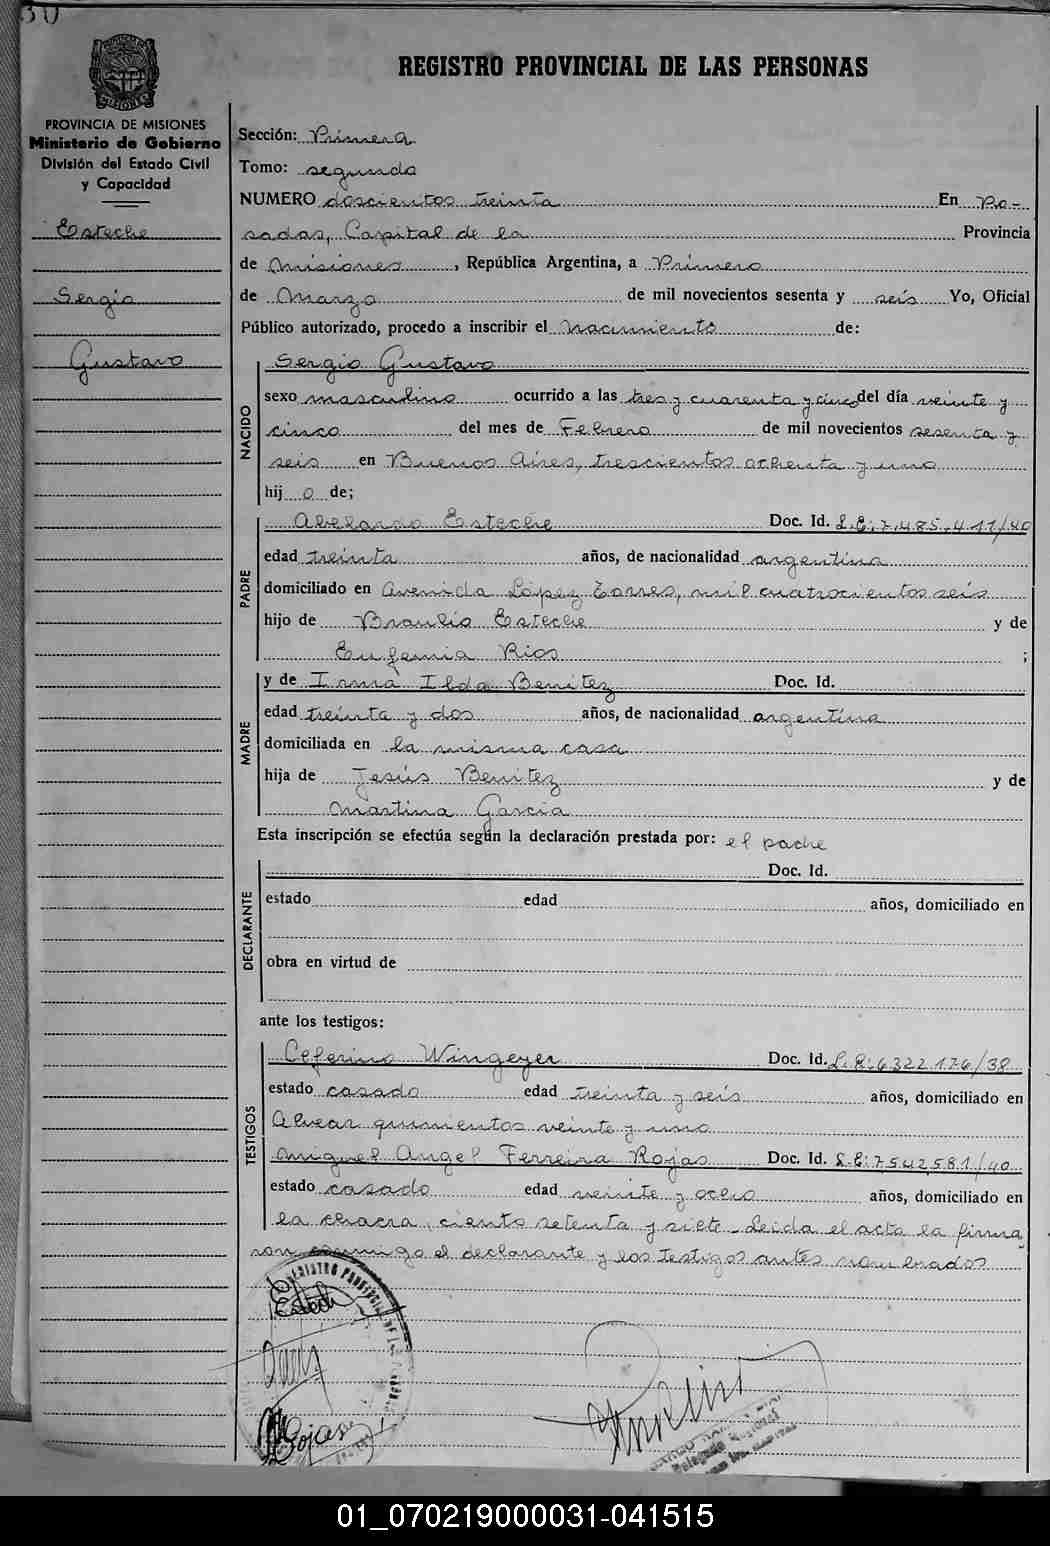 30
PROVINCIA DE MISIONES
PROVINCIA DE MISIONES
Ministerio de Gobierno
División del Estado Civil
y Capacidad
Esteche
Sergio
Gustavo
REGISTRO PROVINCIAL DE LAS PERSONAS
Sección: Primera
Tomo: segundo
NUMERO doscientos treinta En Po-
sadas, Capital de la Provincia
de Misiones, República Argentina, a Primero
de Marzo de mil novecientos sesenta y seis Yo, Oficial
Público autorizado, procedo a inscribir el nacimiento de:
NACIDO
Sergio Gustavo
sexo masculino ocurrido a las tres y cuarenta y cinco del día veinte y
cinco del mes de Febrero de mil novecientos sesenta y
seis en Buenos Aires, trescientos ochenta y uno
hij o de;
PADRE
Abelardo Esteche Doc. Id. L.E: 7.485.411/40
edad treinta años, de nacionalidad argentina
domiciliado en Avenida López Torres, mil cuatrocientos seis
hijo de Braulio Esteche y de
Eufemia Rios ;
MADRE
y de Irma Ilda Benitez Doc. Id.
edad treinta y dos años, de nacionalidad argentina
domiciliada en la misma casa
hija de Jesús Benitez y de
Martina Garcia
Esta inscripción se efectúa según la declaración prestada por: el padre
DECLARANTE
Doc. Id.
estado edad años, domiciliado en
obra en virtud de
ante los testigos:
TESTIGOS
Ceferino Wingeyer Doc. Id. L.E: 6322.176/38
estado casado edad treinta y seis años, domiciliado en
Alvear quinientos veinte y uno
Miguel Angel Ferreira Rojas Doc. Id. L.E: 7.542.581/40
estado casado edad veinte y ocho años, domiciliado en
la chacra, ciento setenta y siete. Leida el acta la firma
ron conmigo el declarante y los testigos antes nombrados
REGISTRO PROVINCIAL DE LAS PERSONAS
Esteche
Rojas
Delegado
01_070219000031-041515